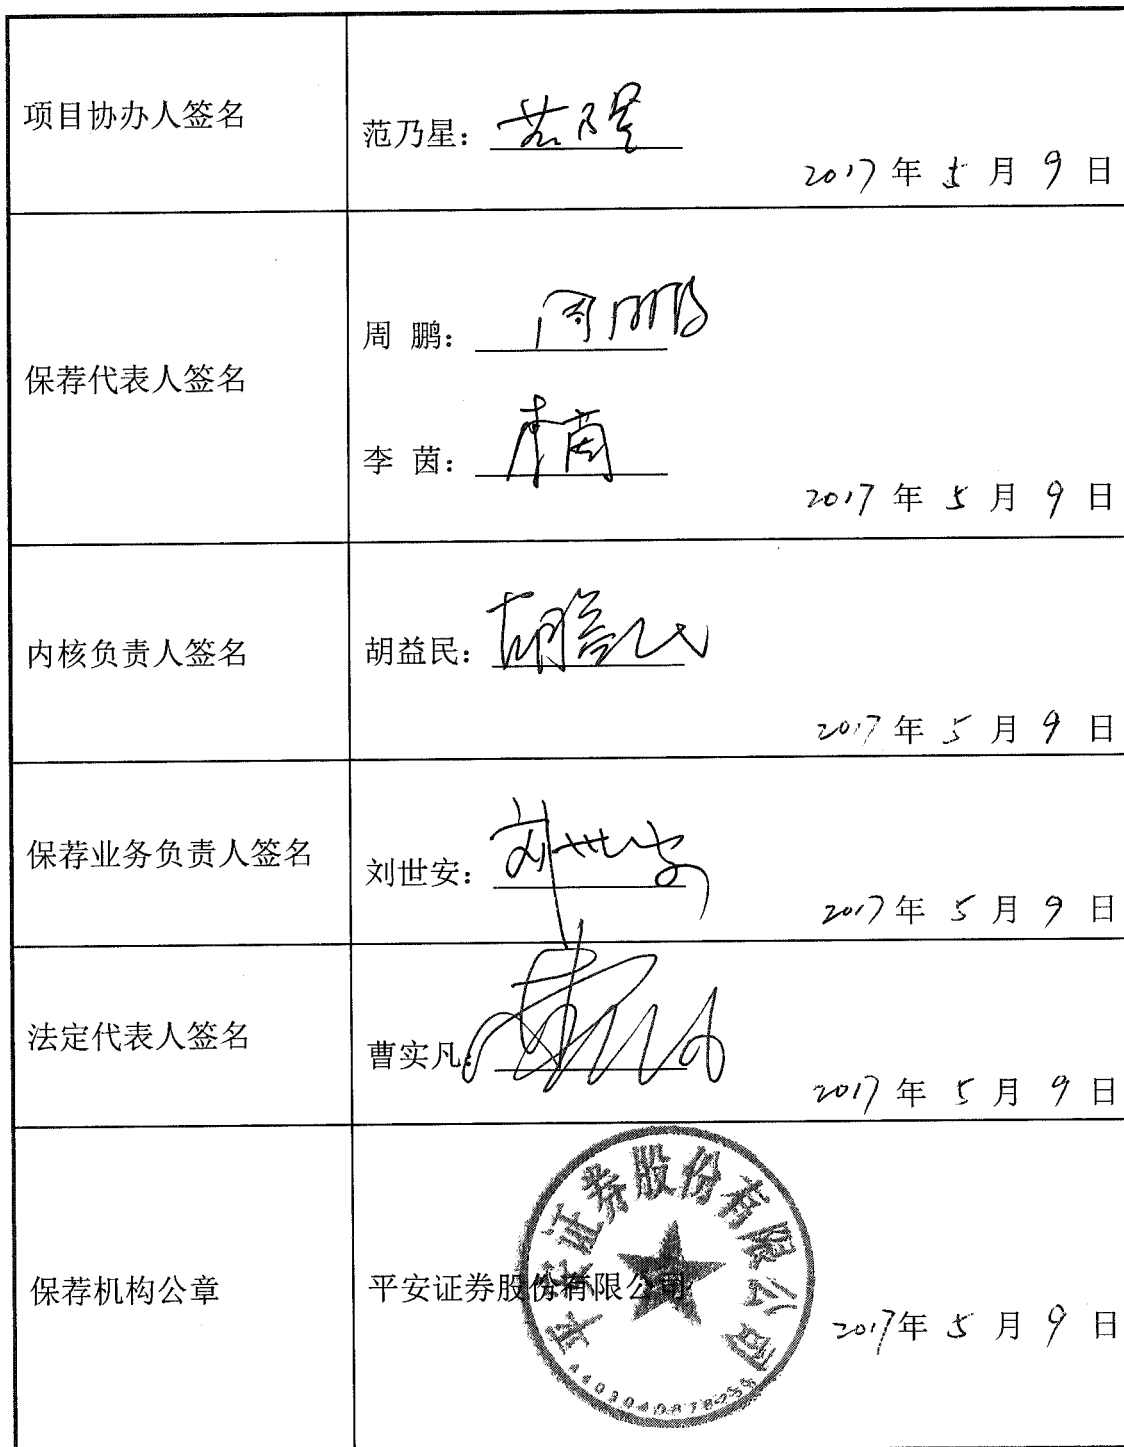 项目协办人签名
范乃星：范乃星
2017 年 5 月 9 日
保荐代表人签名
周 鹏：周鹏
李 茵：李茵
2017 年 5 月 9 日
内核负责人签名
胡益民：胡益民
2017 年 5 月 9 日
保荐业务负责人签名
刘世安：刘世安
2017 年 5 月 9 日
法定代表人签名
曹实凡：
2017 年 5 月 9 日
保荐机构公章
平安证券股份有限公司
平安证券股份有限公司
2017年 5 月 9 日